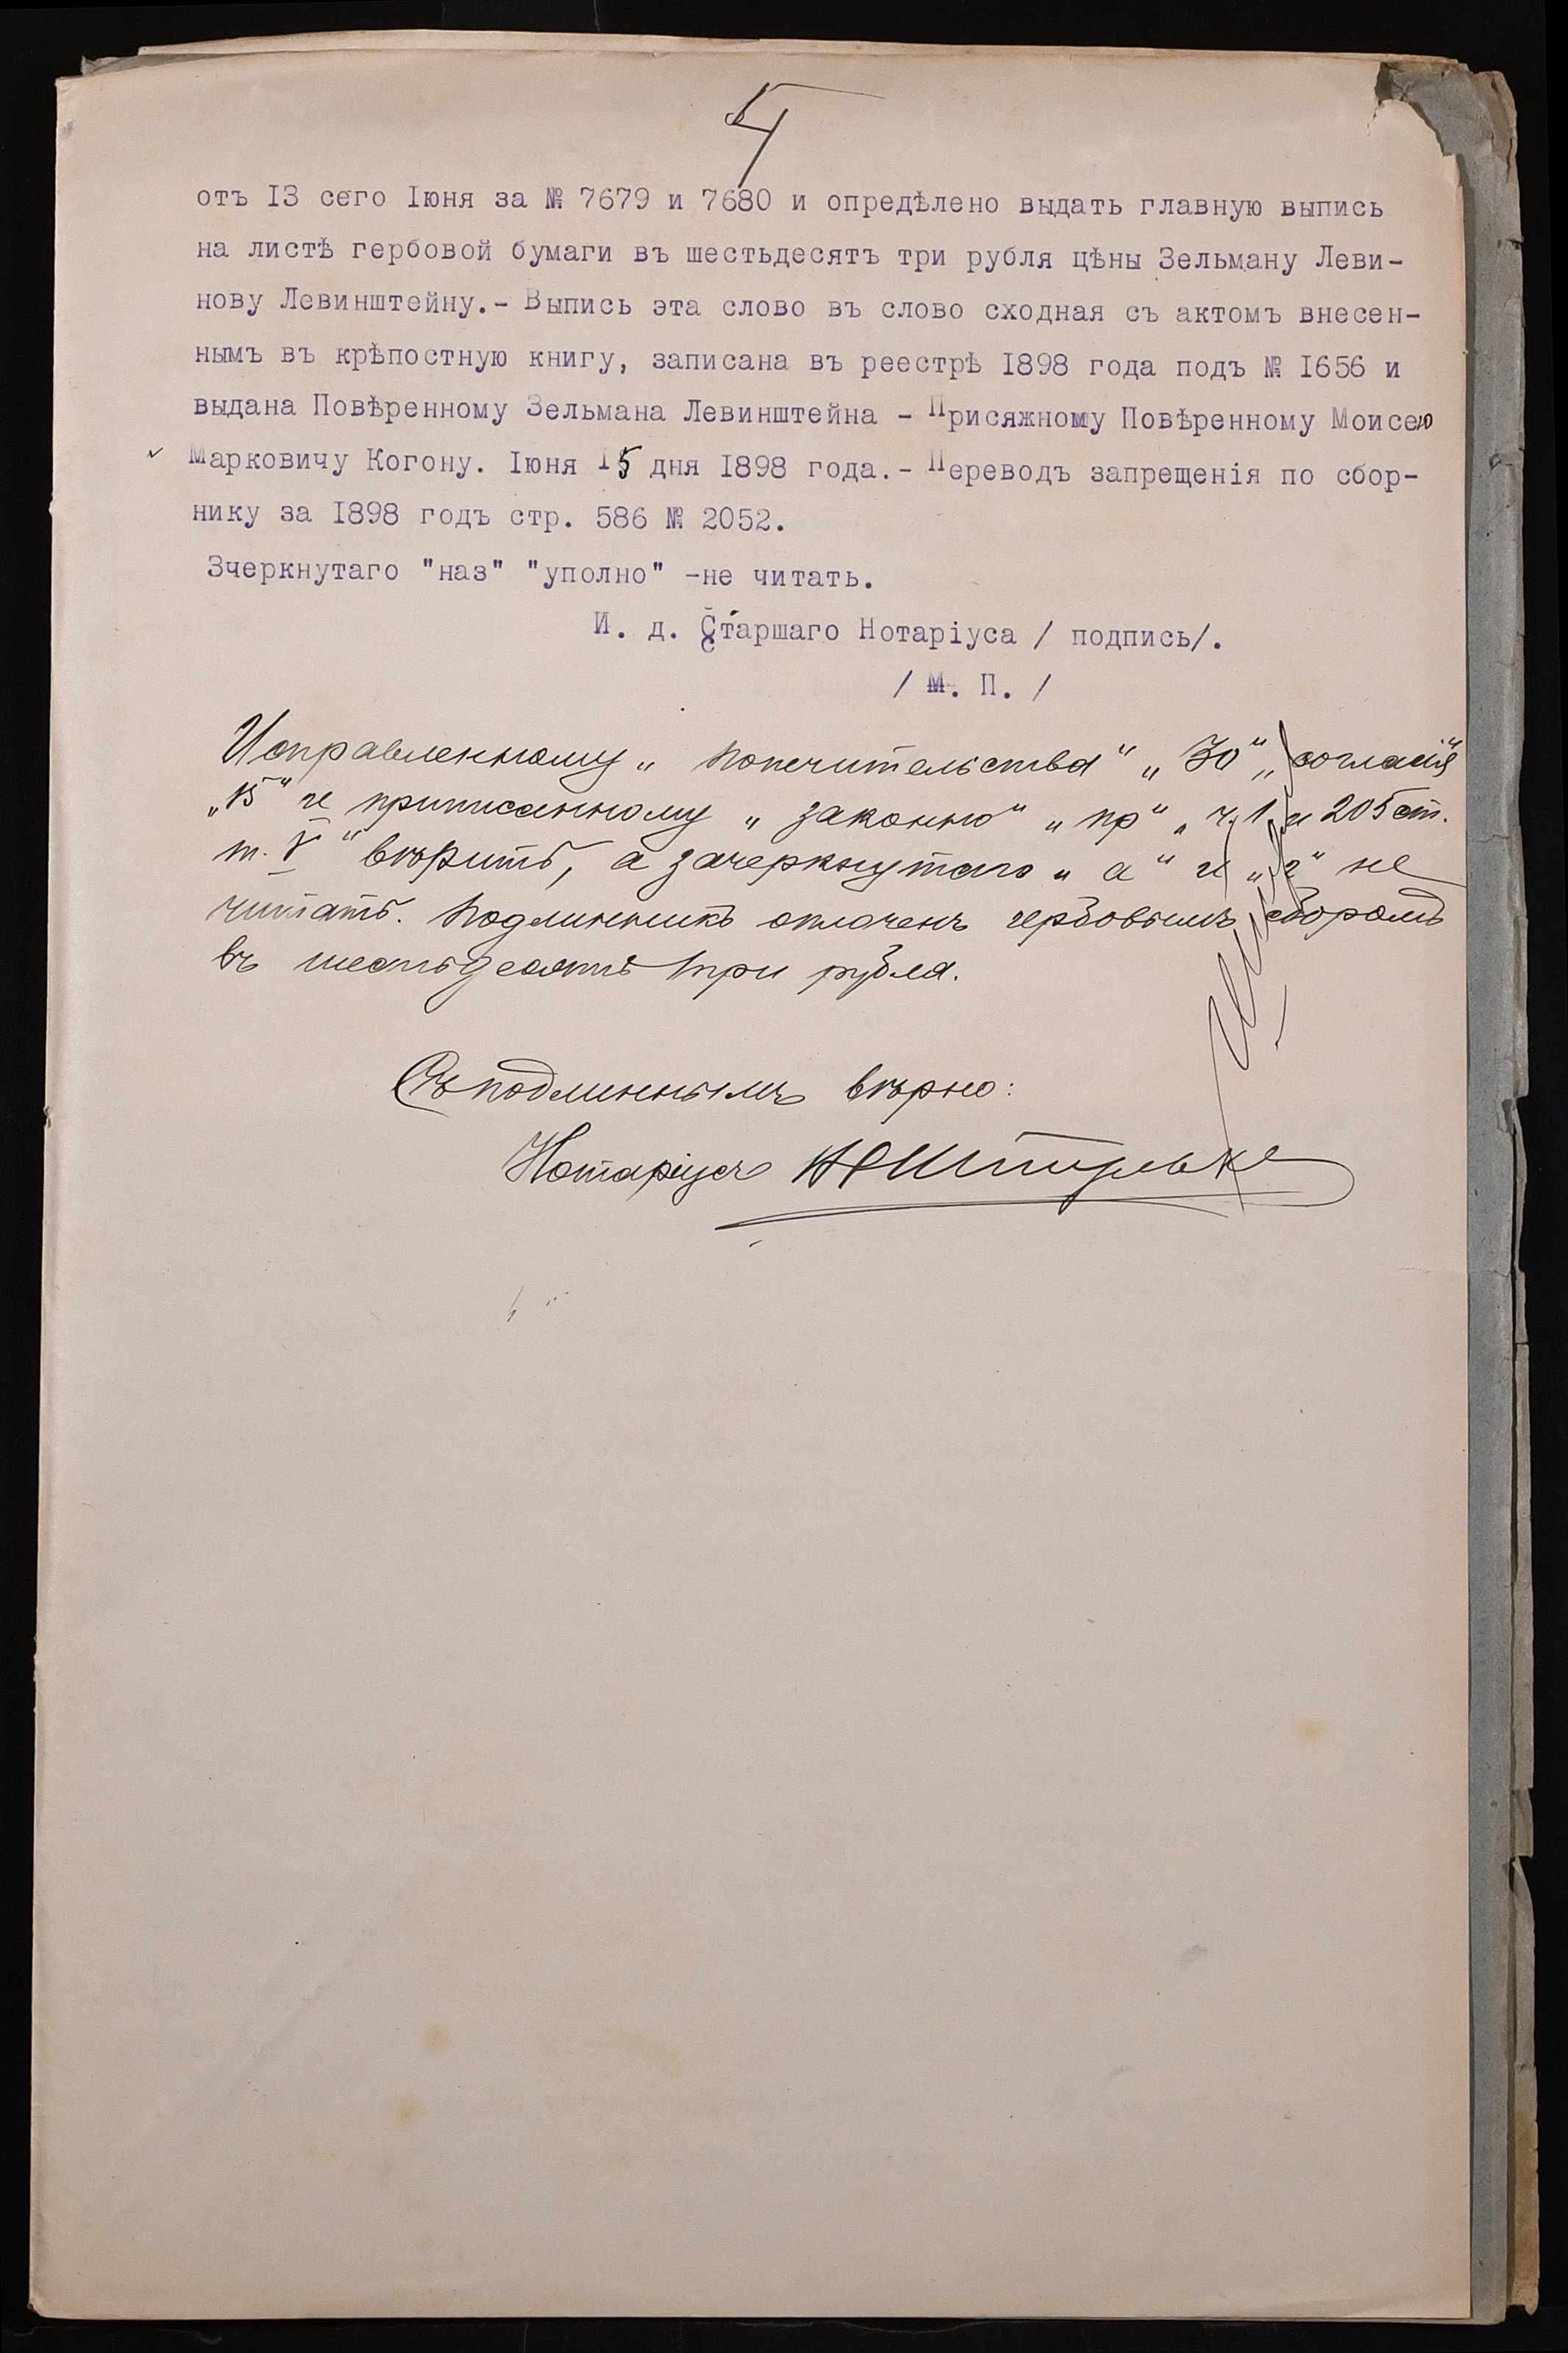 5
отъ 13 сего Іюня за № 7679 и 7680 и опредѣлено выдать главную выпись
на листѣ гербовой бумаги въ шестьдесятъ три рубля цѣны Зельману Леви-
нову Левинштейну.- Выпись эта слово въ слово сходная съ актомъ внесен-
нымъ въ крѣпостную книгу, записана въ реестрѣ 1898 года подъ № 1656 и
выдана Повѣренному Зельмана Левинштейна - Присяжному Повѣренному Моисею
Марковичу Когону. Іюня 15 дня 1898 года.- Переводъ запрещенія по сбор-
нику за 1898 годъ стр. 586 № 2052.
Зчеркнутаго "наз" "уполно" -не читать.
И. д. Старшаго Нотаріуса / подпись/.
/ М. П. /
Исправленному „ попечительства" „ 30" „ согласія"
„15" и приписанному „ законно" „ пр" „ ч. 1 и 205 ст.
т. V " вѣрить, а зачеркнутаго „ а" и „ г" не
читать. Подлинникъ оплаченъ гербовымъ сборомъ
въ шестьдесятъ три рубля.
Съ подлиннымъ вѣрно:
Нотаріусъ